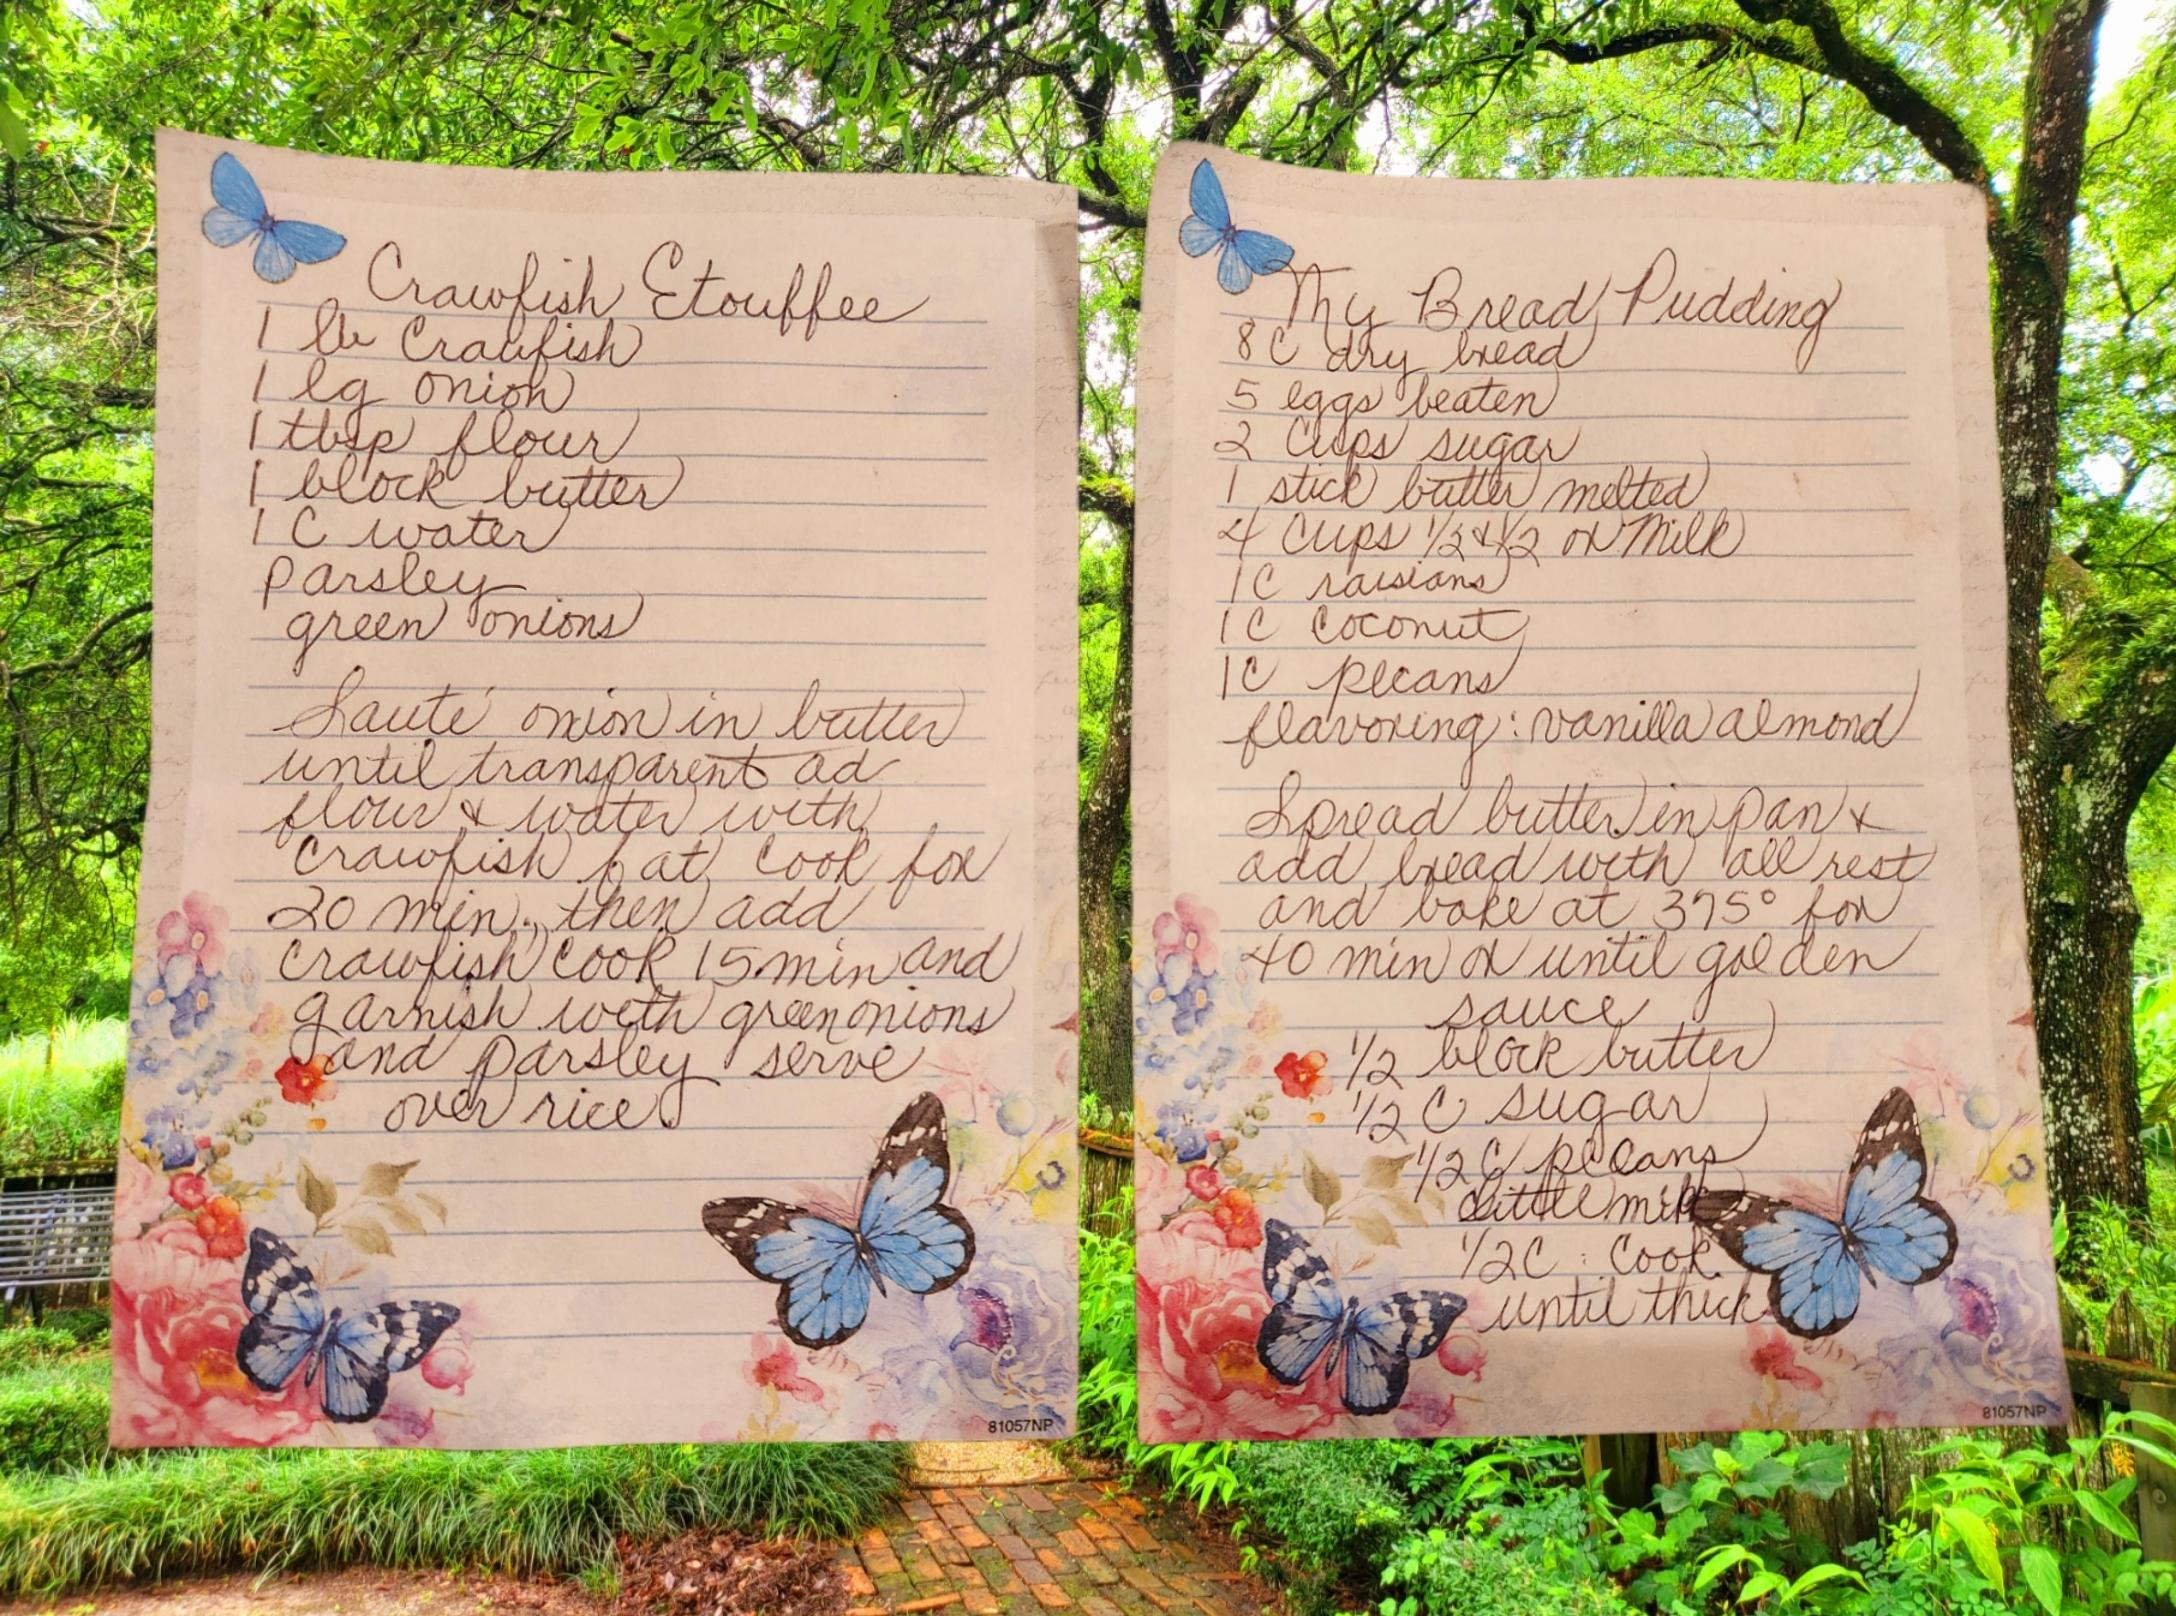 Crawfish Etouffee
1 lb Crawfish
1 lg onion
1 tbsp flour
1 block butter
1 C water
parsley
green onions
Sauté onion in butter
until transparent ad
flour & water with
crawfish fat cook for
20 min., then add
crawfish cook 15 min and
garnish with green onions
and parsley serve
over rice.
81057NP
My Bread Pudding
8 C dry bread
5 eggs beaten
2 Cups sugar
1 stick butter melted
4 Cups 1/2 & 1/2 or Milk
1 C raisians
1 C Coconut
1 C pecans
flavoring : vanilla almond
Spread butter in pan &
add bread with all rest
and bake at 375° for
40 min or until golden
sauce
1/2 block butter
1/2 C sugar
1/2 C pecans
little milk
1/2 C : Cook
until thick
81057NP